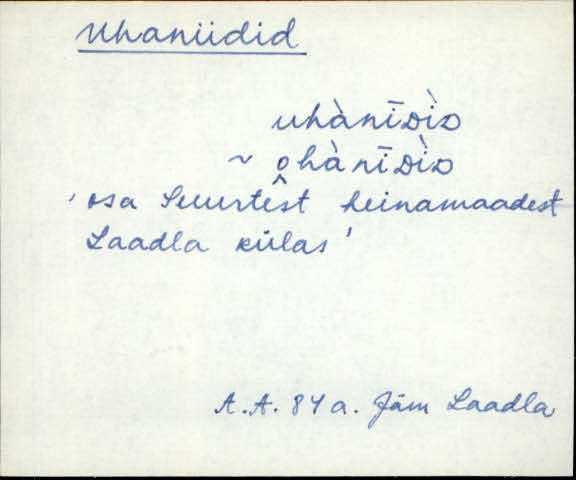 Uhaniidid
uhànīᴅìᴅ
~ o̭hànīᴅìᴅ
'osa Suurtest heinamaadest
Laadla külas'
A.A. 84 a. Jäm Laadla